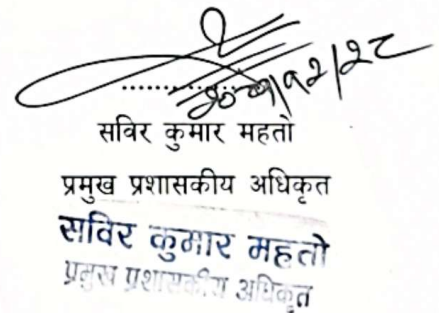 २०७९/१२/२८
सविर कुमार महतो
प्रमुख प्रशासकीय अधिकृत
सविर कुमार महतो
प्रमुख प्रशासकीय अधिकृत